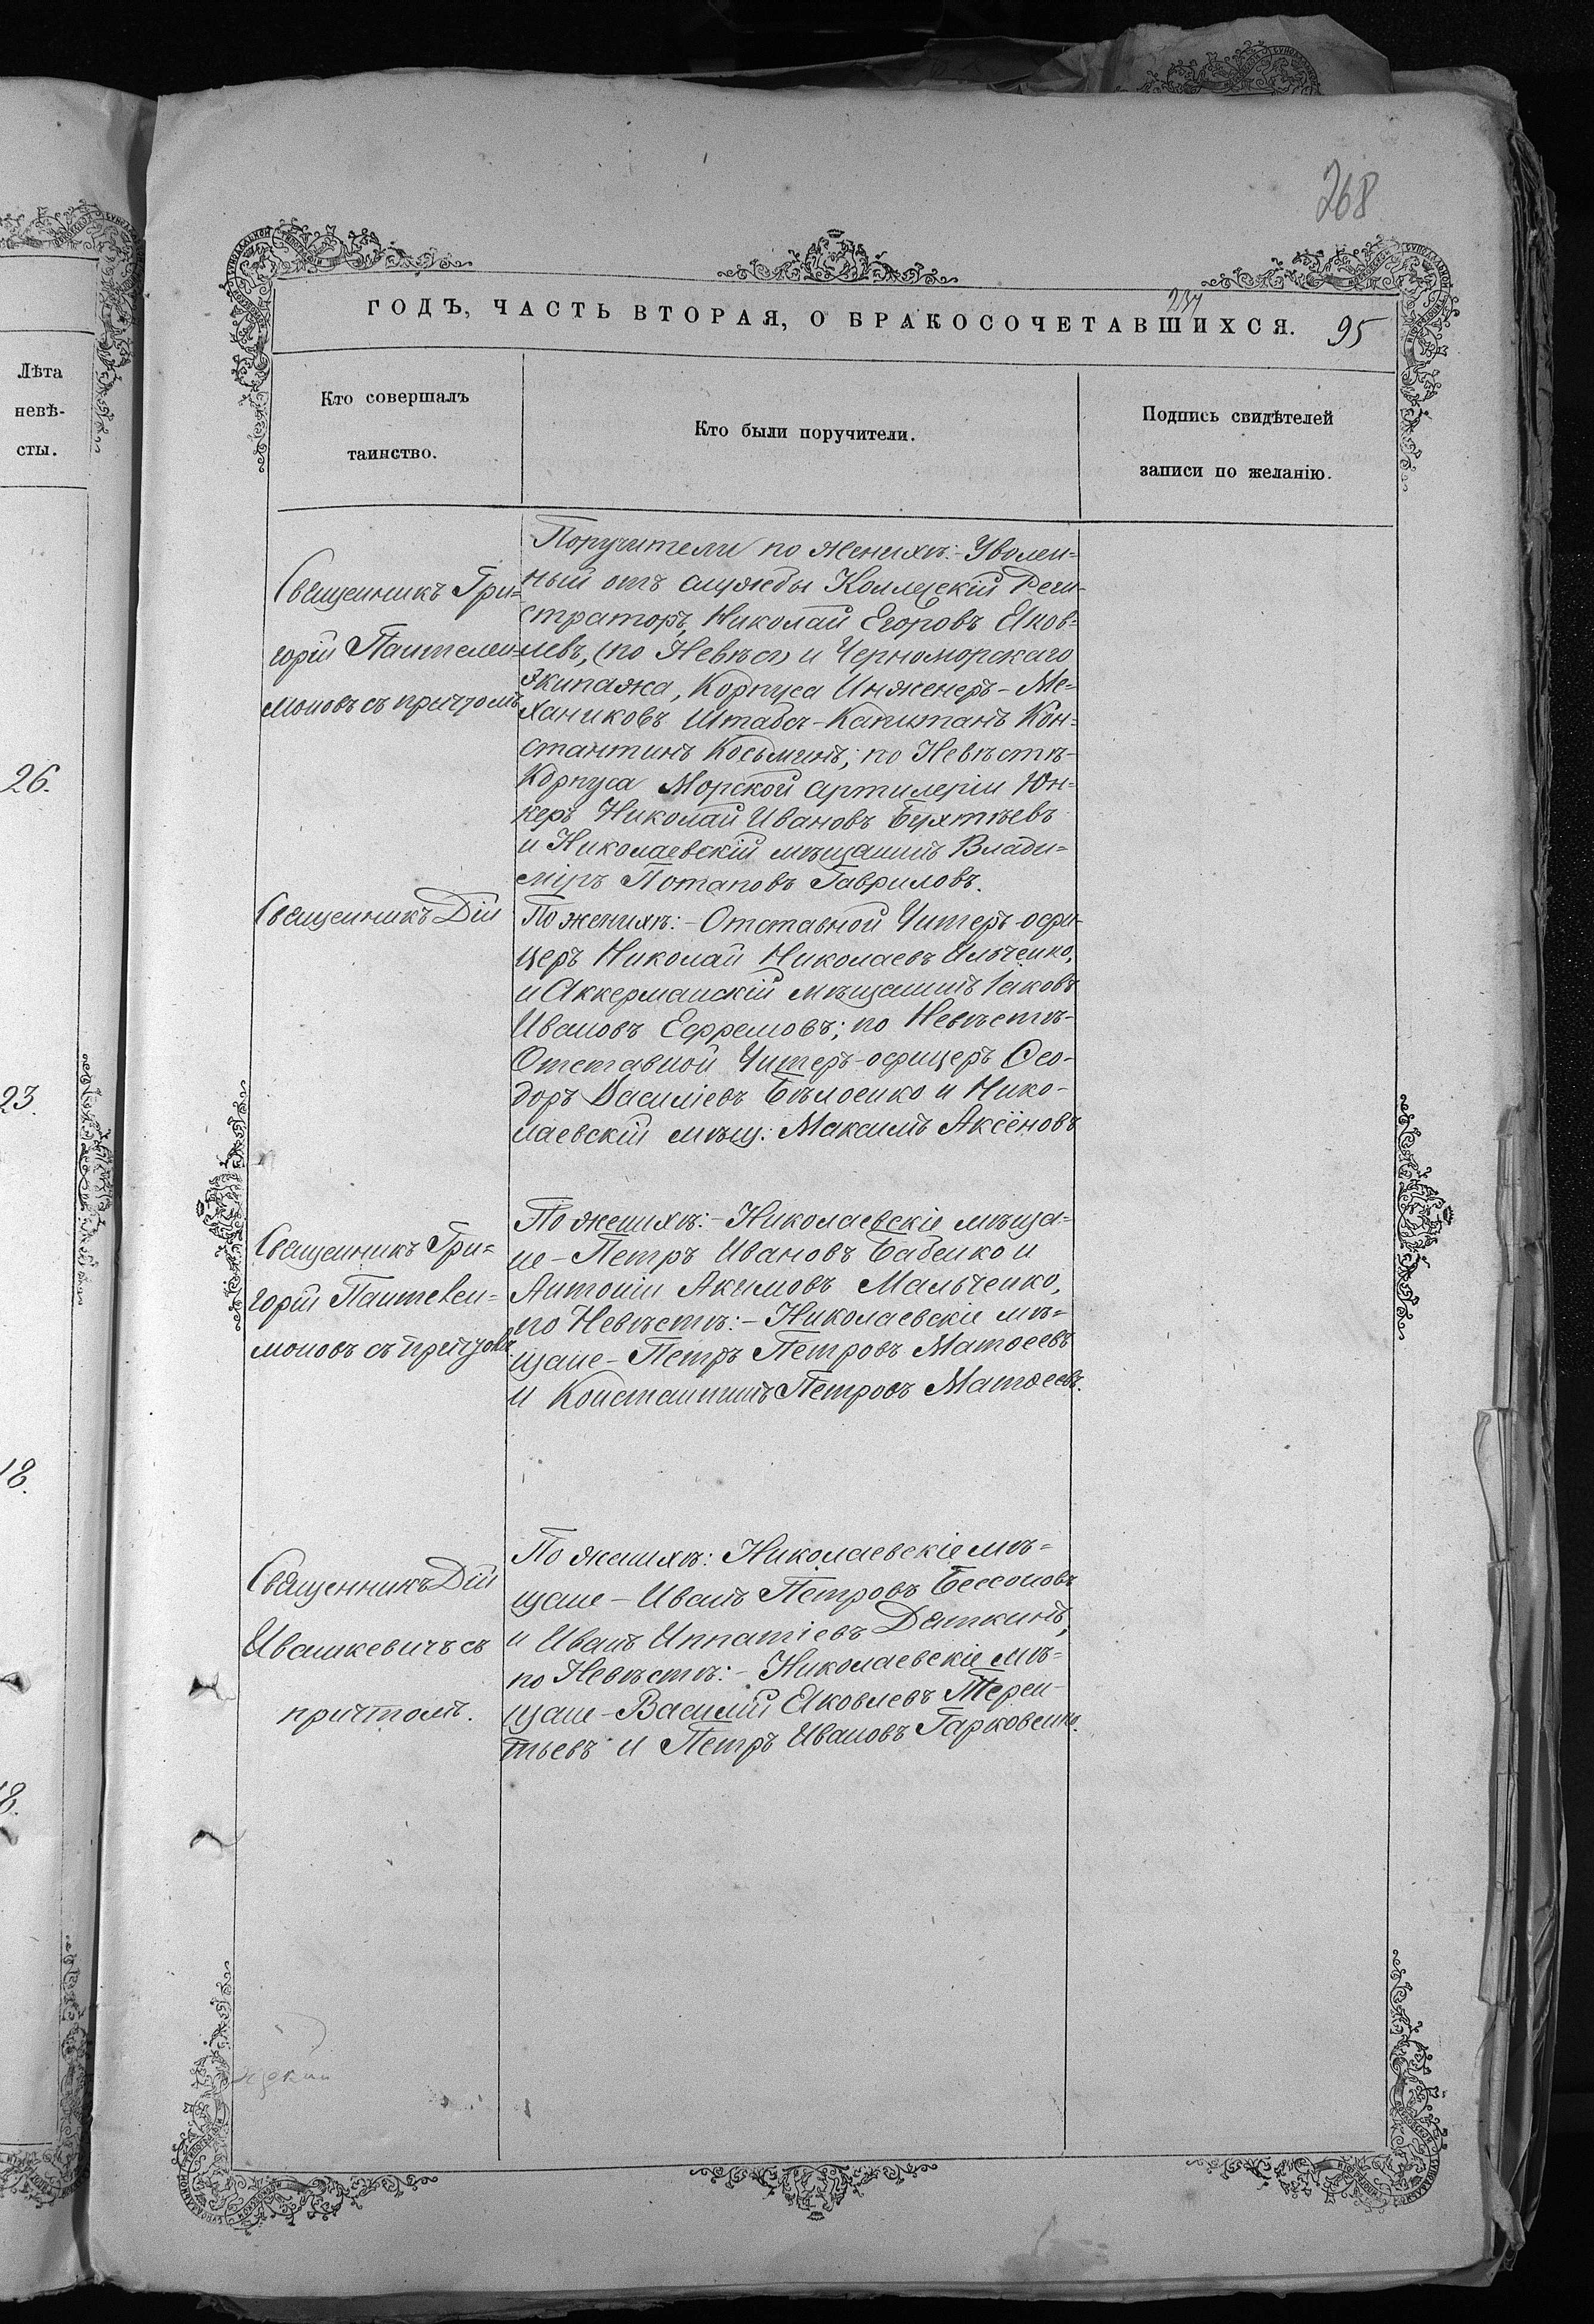 268
237
ГОДЪ, ЧАСТЬ ВТОРАЯ, О БРАКОСОЧЕТАВШИХСЯ. 95
Лѣта
невѣ-
сты.
Кто совершалъ
таинство.
Кто были поручители.
Подпись свидѣтелей
записи по желанію.
26.
23.
18.
18.
Священникъ Гри=
горій Пантелеи-
моновъ съ причтомъ
Поручители по женихѣ:- Уволен=
ный отъ службы Коллежскій Реги-
страторъ, Николай Егоровъ Яков=
левъ, (по Невѣст) и Черноморскаго
Экипажа, Корпуса Инженеръ-Ме=
ханиковъ Штабсъ-Капитанъ Кон=
стантинъ Косьминъ; по Невѣстѣ-
Корпуса Морской артилеріи Юн-
керъ Николай Ивановъ Бухтѣевъ
и Николаевскій мѣщанинъ Влади=
міръ Потаповъ Гавриловъ.
Священникъ Дій
По женихѣ:- Отставной Унтеръ-офи-
церъ Николай Николаевъ Ильченко,
и Аккерманскій мѣщанинъ Іаковъ
Ивановъ Ефремовъ; по Невѣстѣ-
Отставной Унтеръ-офицеръ Ѳео-
доръ Василіевъ Бѣлоенко и Нико-
лаевскій мѣщ: Максимъ Аксёновъ
Священникъ Гри=
горій Пантелеи-
моновъ съ причтомъ
По женихѣ:- Николаевскіе мѣща=
не - Петръ Ивановъ Бабенко и
Антоній Акимовъ Мальченко,
по Невѣстѣ:- Николаевскіе мѣ=
щане - Петръ Петровъ Матѳеевъ
и Константинъ Петровъ Матѳеевъ.
Священникъ Дій
Ивашкевичъ съ
причтомъ.
По женихѣ: Николаевскіе мѣ=
щане - Иванъ Петровъ Бессоновъ
и Иванъ Игнатіевъ Дяткинъ,
по Невѣстѣ:- Николаевскіе мѣ=
щане - Василій Яковлевъ Терен-
тьевъ и Петръ Ивановъ Гарковенко.